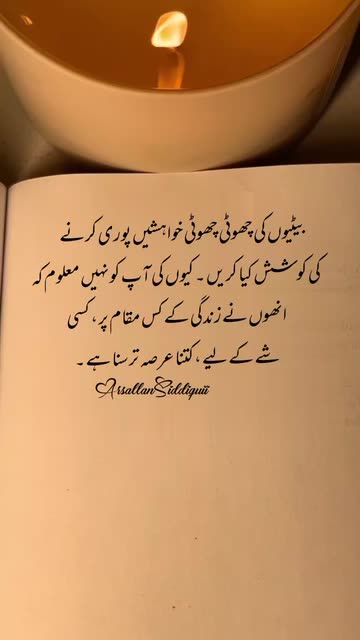 بیٹیوں کی چھوٹی چھوٹی خواہشیں پوری کرنے
کی کوشش کیا کریں ۔ کیوں کی آپ کو نہیں معلوم کہ
انھوں نے زندگی کے کس مقام پر ، کسی
شے کے لیے ، کتنا عرصہ ترسنا ہے ۔
ArsallanSiddiquii